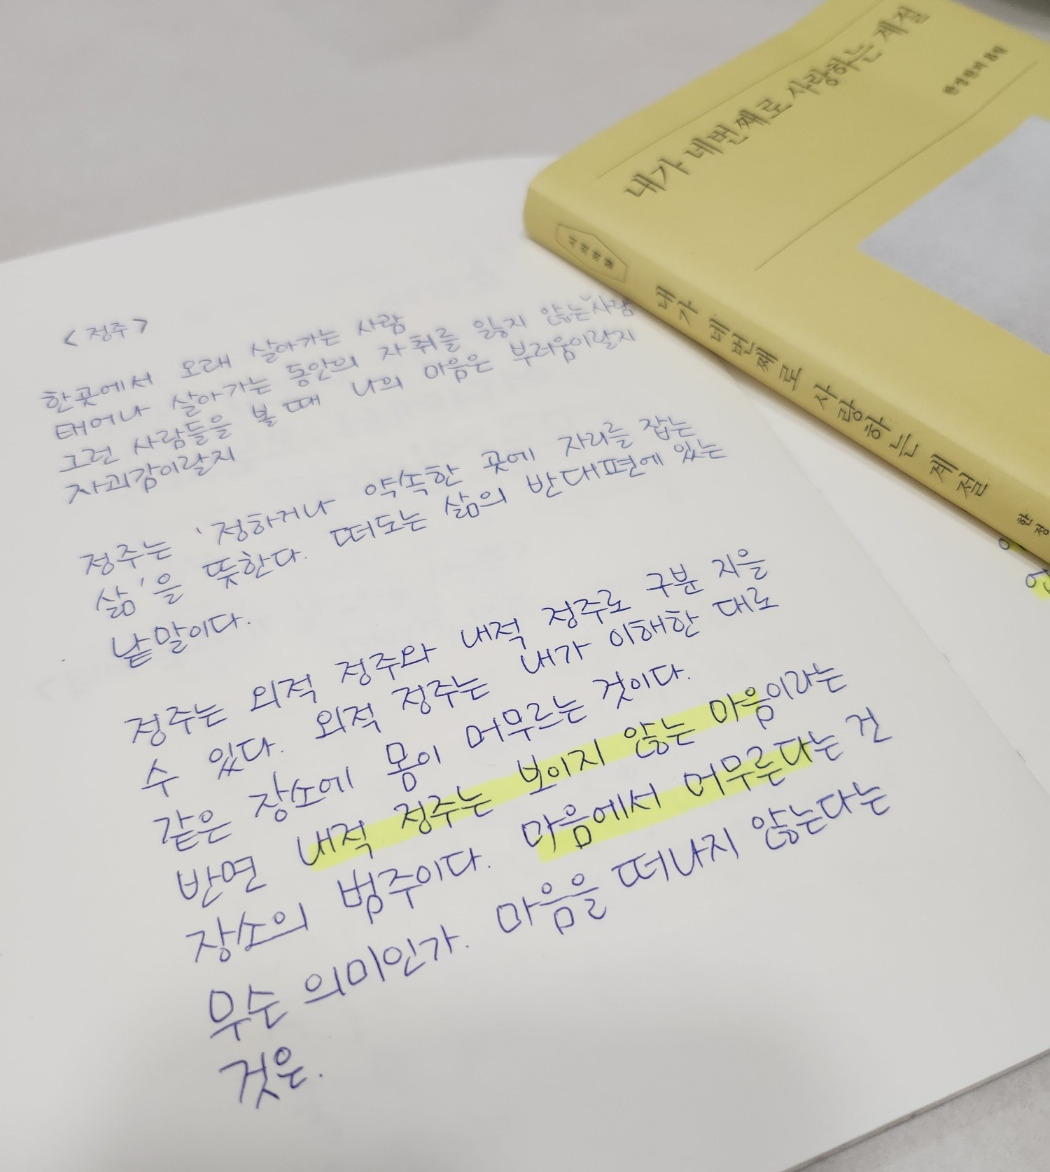 내가 네번째로 사랑하는 계절
한정원의 8월
시의적절
내가 네번째로 사랑하는 계절
한정
<정주>
한곳에서 오래 살아가는 사람
태어나 살아가는 동안의 자취를 잃지 않는 사람
그런 사람들을 볼 때 나의 마음은 부러움이랄지
자괴감이랄지
정주는 '정하거나 약속한 곳에 자리를 잡는
삶'을 뜻한다. 떠도는 삶의 반대편에 있는
낱말이다.
정주는 외적 정주와 내적 정주로 구분 지을
수 있다. 외적 정주는 내가 이해한 대로
같은 장소에 몸이 머무르는 것이다.
반면 내적 정주는 보이지 않는 마음이라는
장소의 범주이다. 마음에서 머무른다는 건
무슨 의미인가. 마음을 떠나지 않는다는
것은.